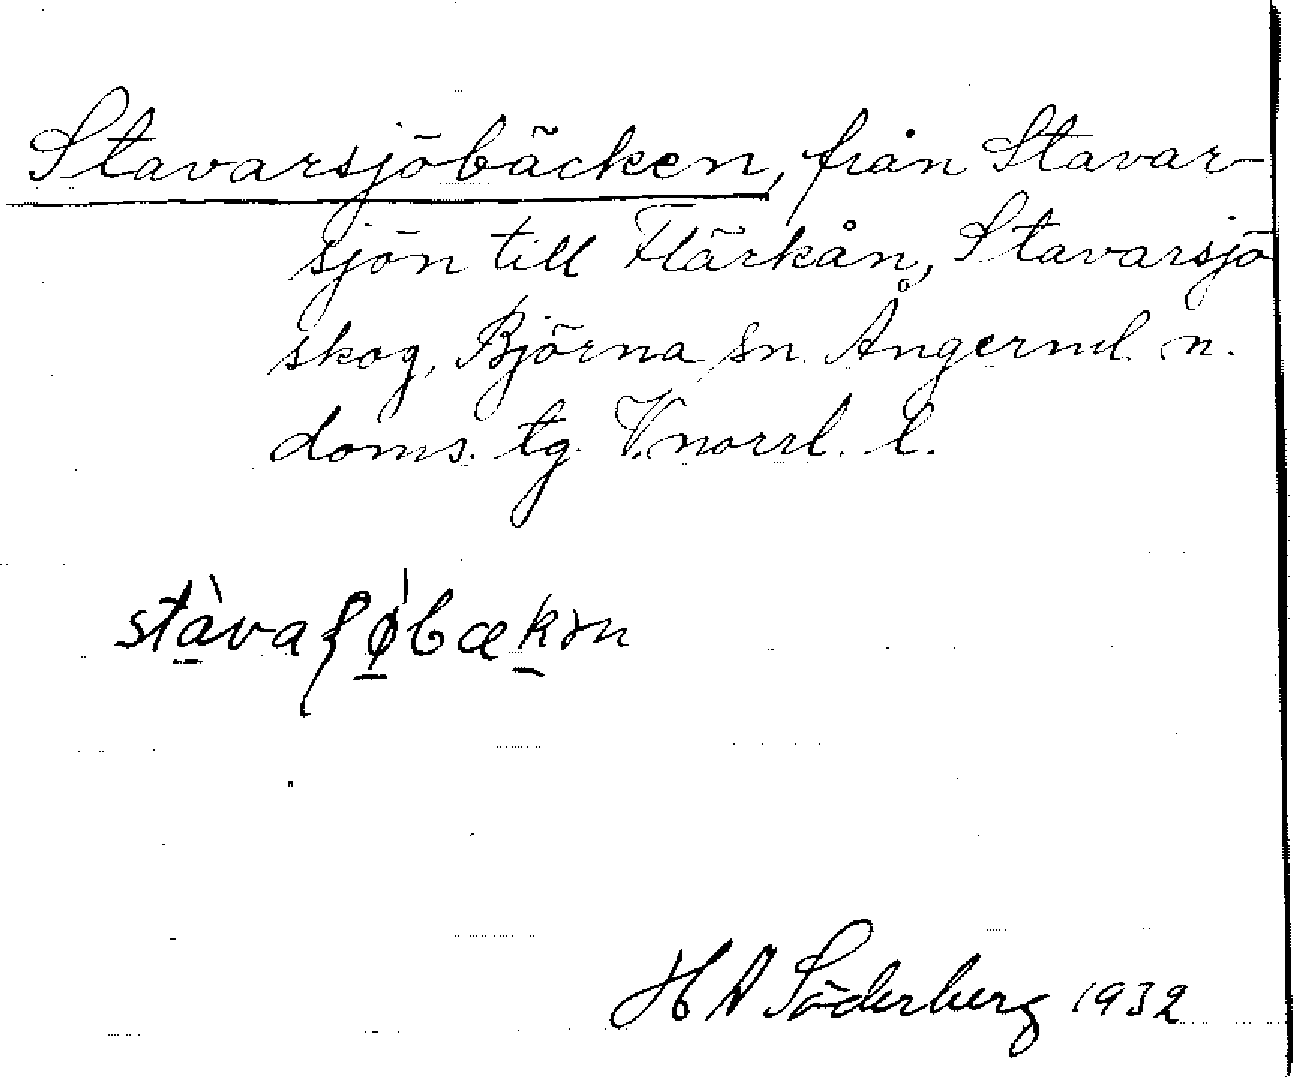 Stavarsjöbäcken, från Stavar-
sjön till Flärkån, Stavarsjö
skog, Björna sn. Ångerml. n.
doms. tg. V.norrl. l.
stàvaʂø̀bækən
H A Söderberg 1932